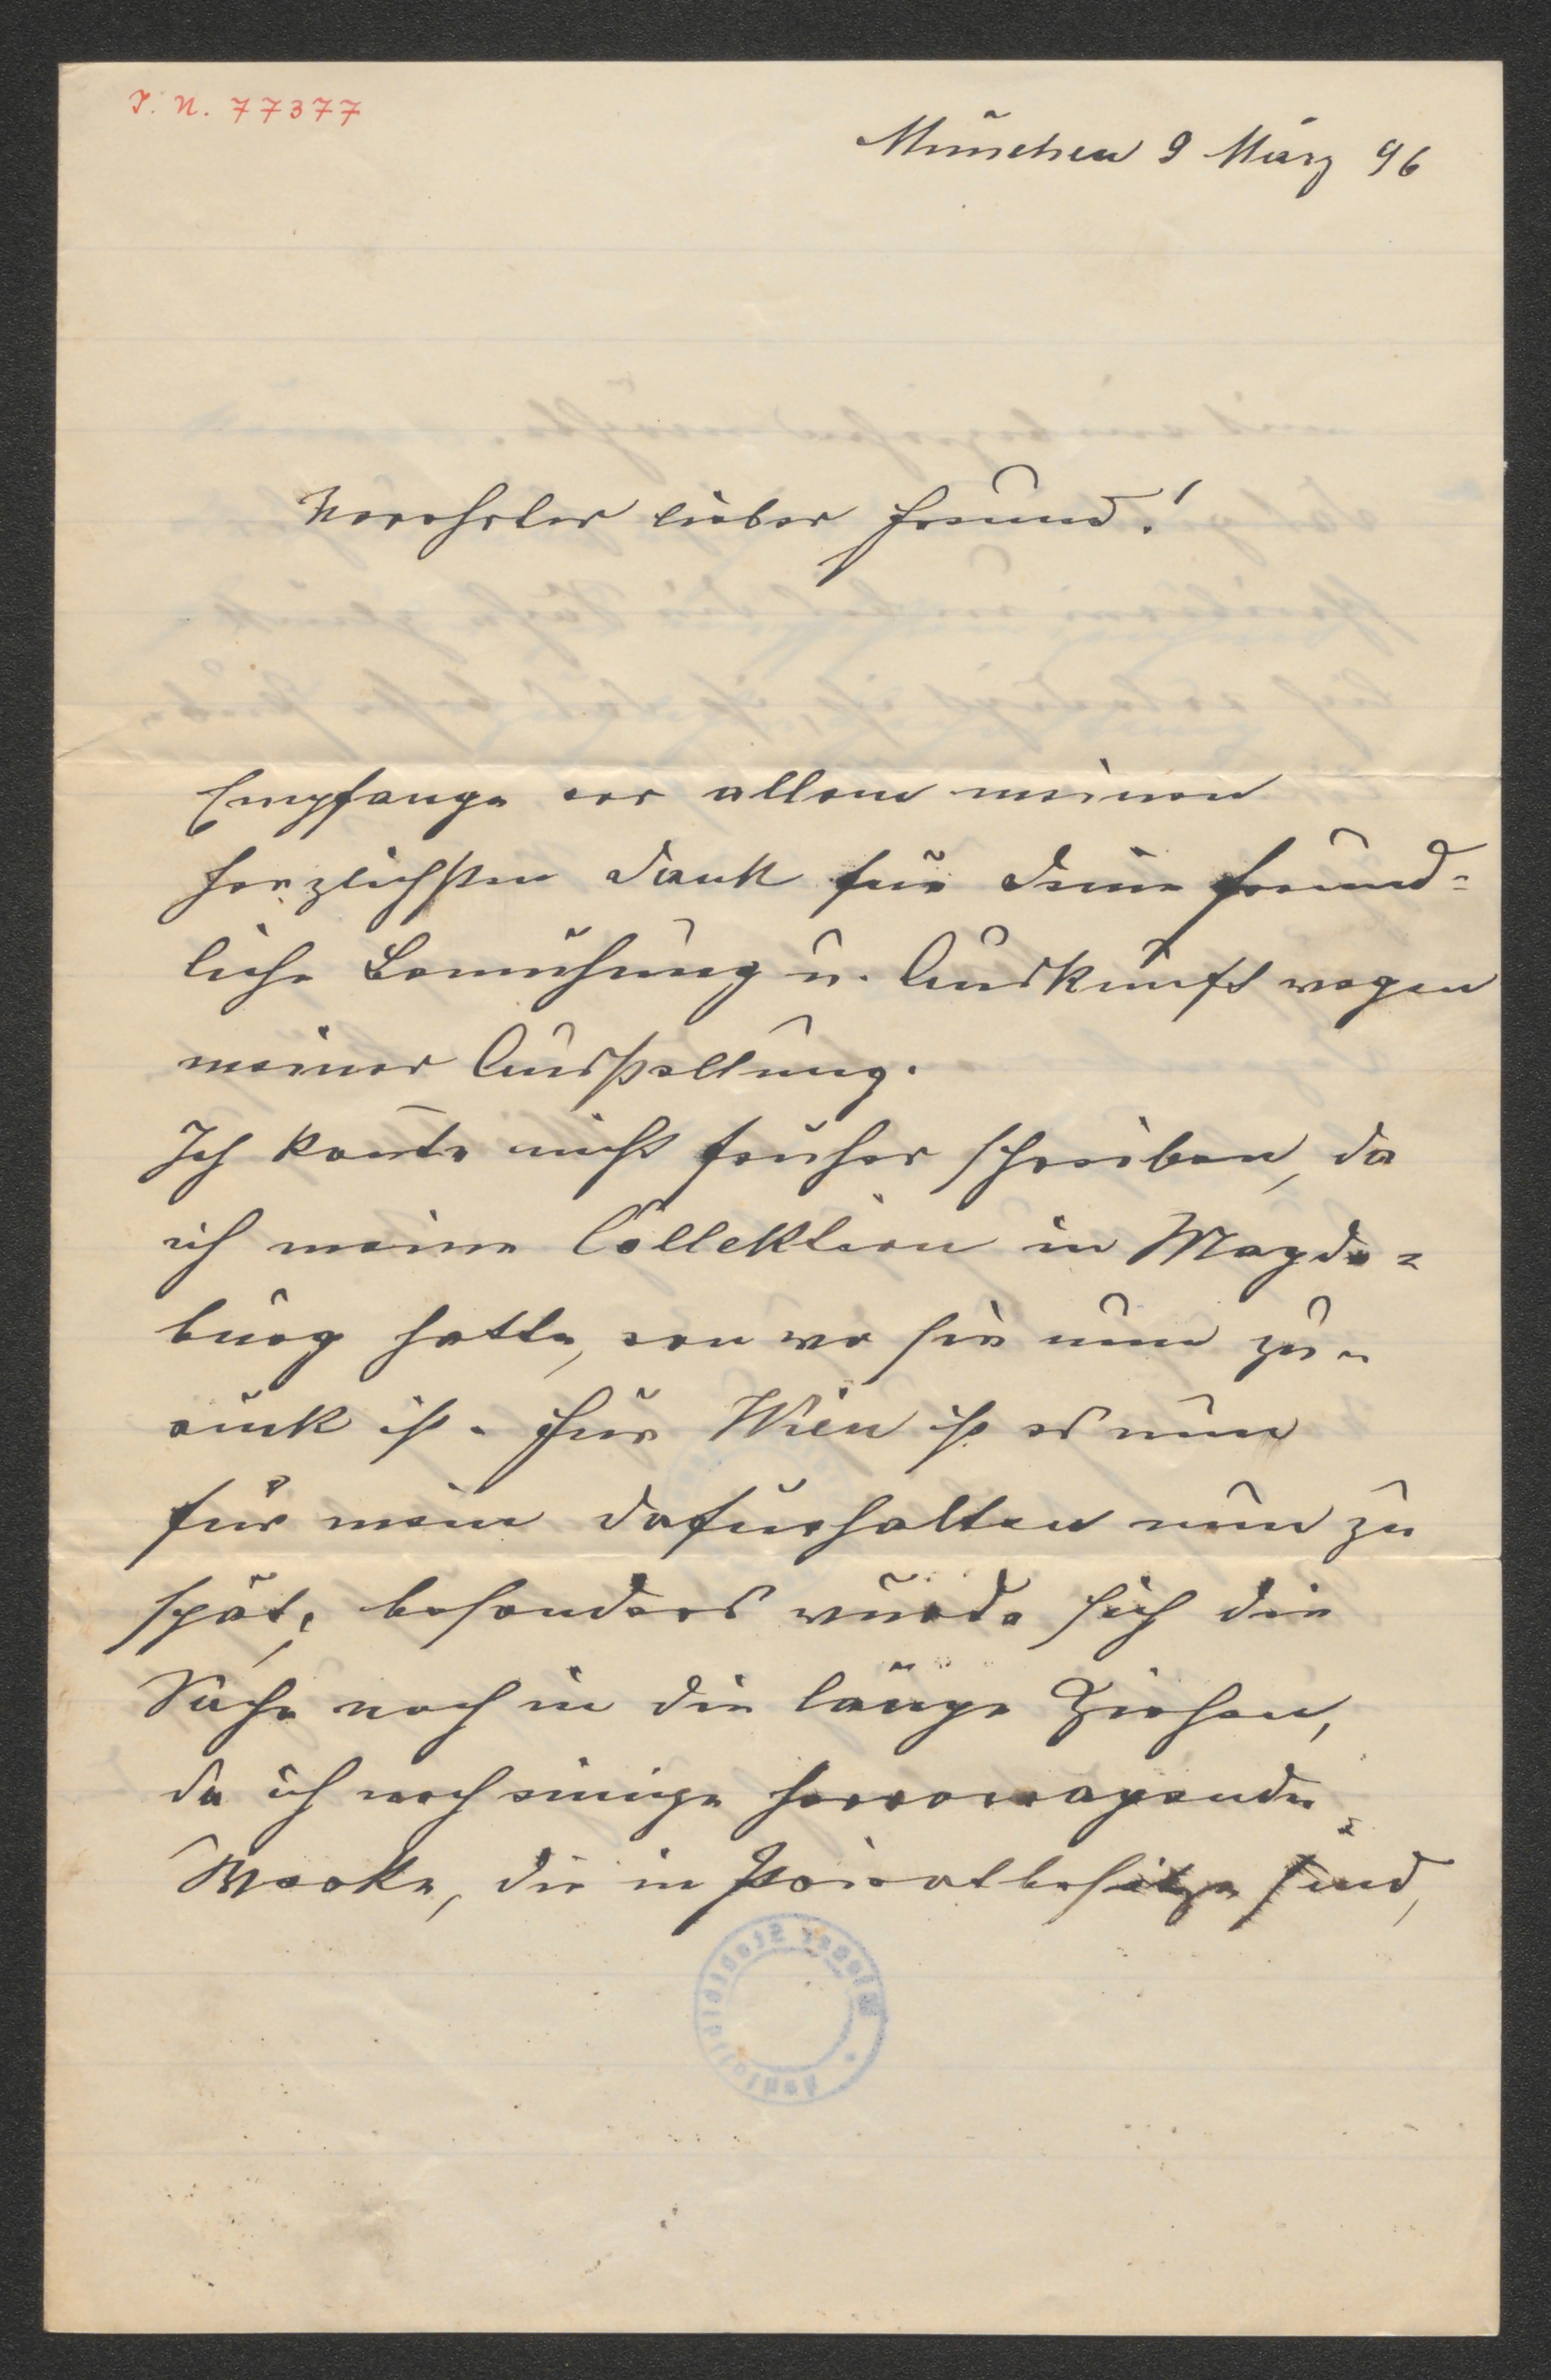 I. N. 77377
München 9 März 96
Verehrter lieber Freund!
Empfange vor allem meinen
herzlichsten Dank für Deine freund=
liche Bemühung u. Auskunft wegen
meiner Ausstellung.
Ich konte nicht früher schreiben, da
ich meine Collektion in Magde=
burg hatte, von wo sie nun zu=
rük ist. Für Wien ist es nun
für mein dafürhalten nun zu
spät, besonders würde sich die
Sache noch in die länge Ziehen,
da ich noch einige hervorragende
Werke, die in Privatbesitze sind,
Wiener Stadtbibliothek